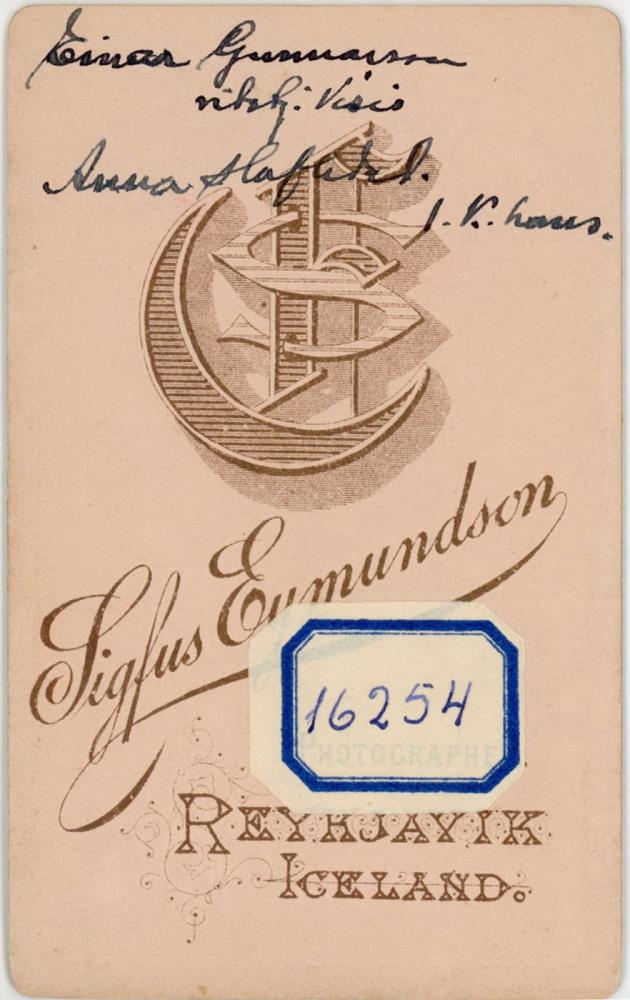 Einar Gunnarsson
ritstj. Vísis
Anna Hafliðad.
1. K. hans.
Sigfus Eymundson
16254
PHOTOGRAPHE
REYKJAVIK
ICELAND.